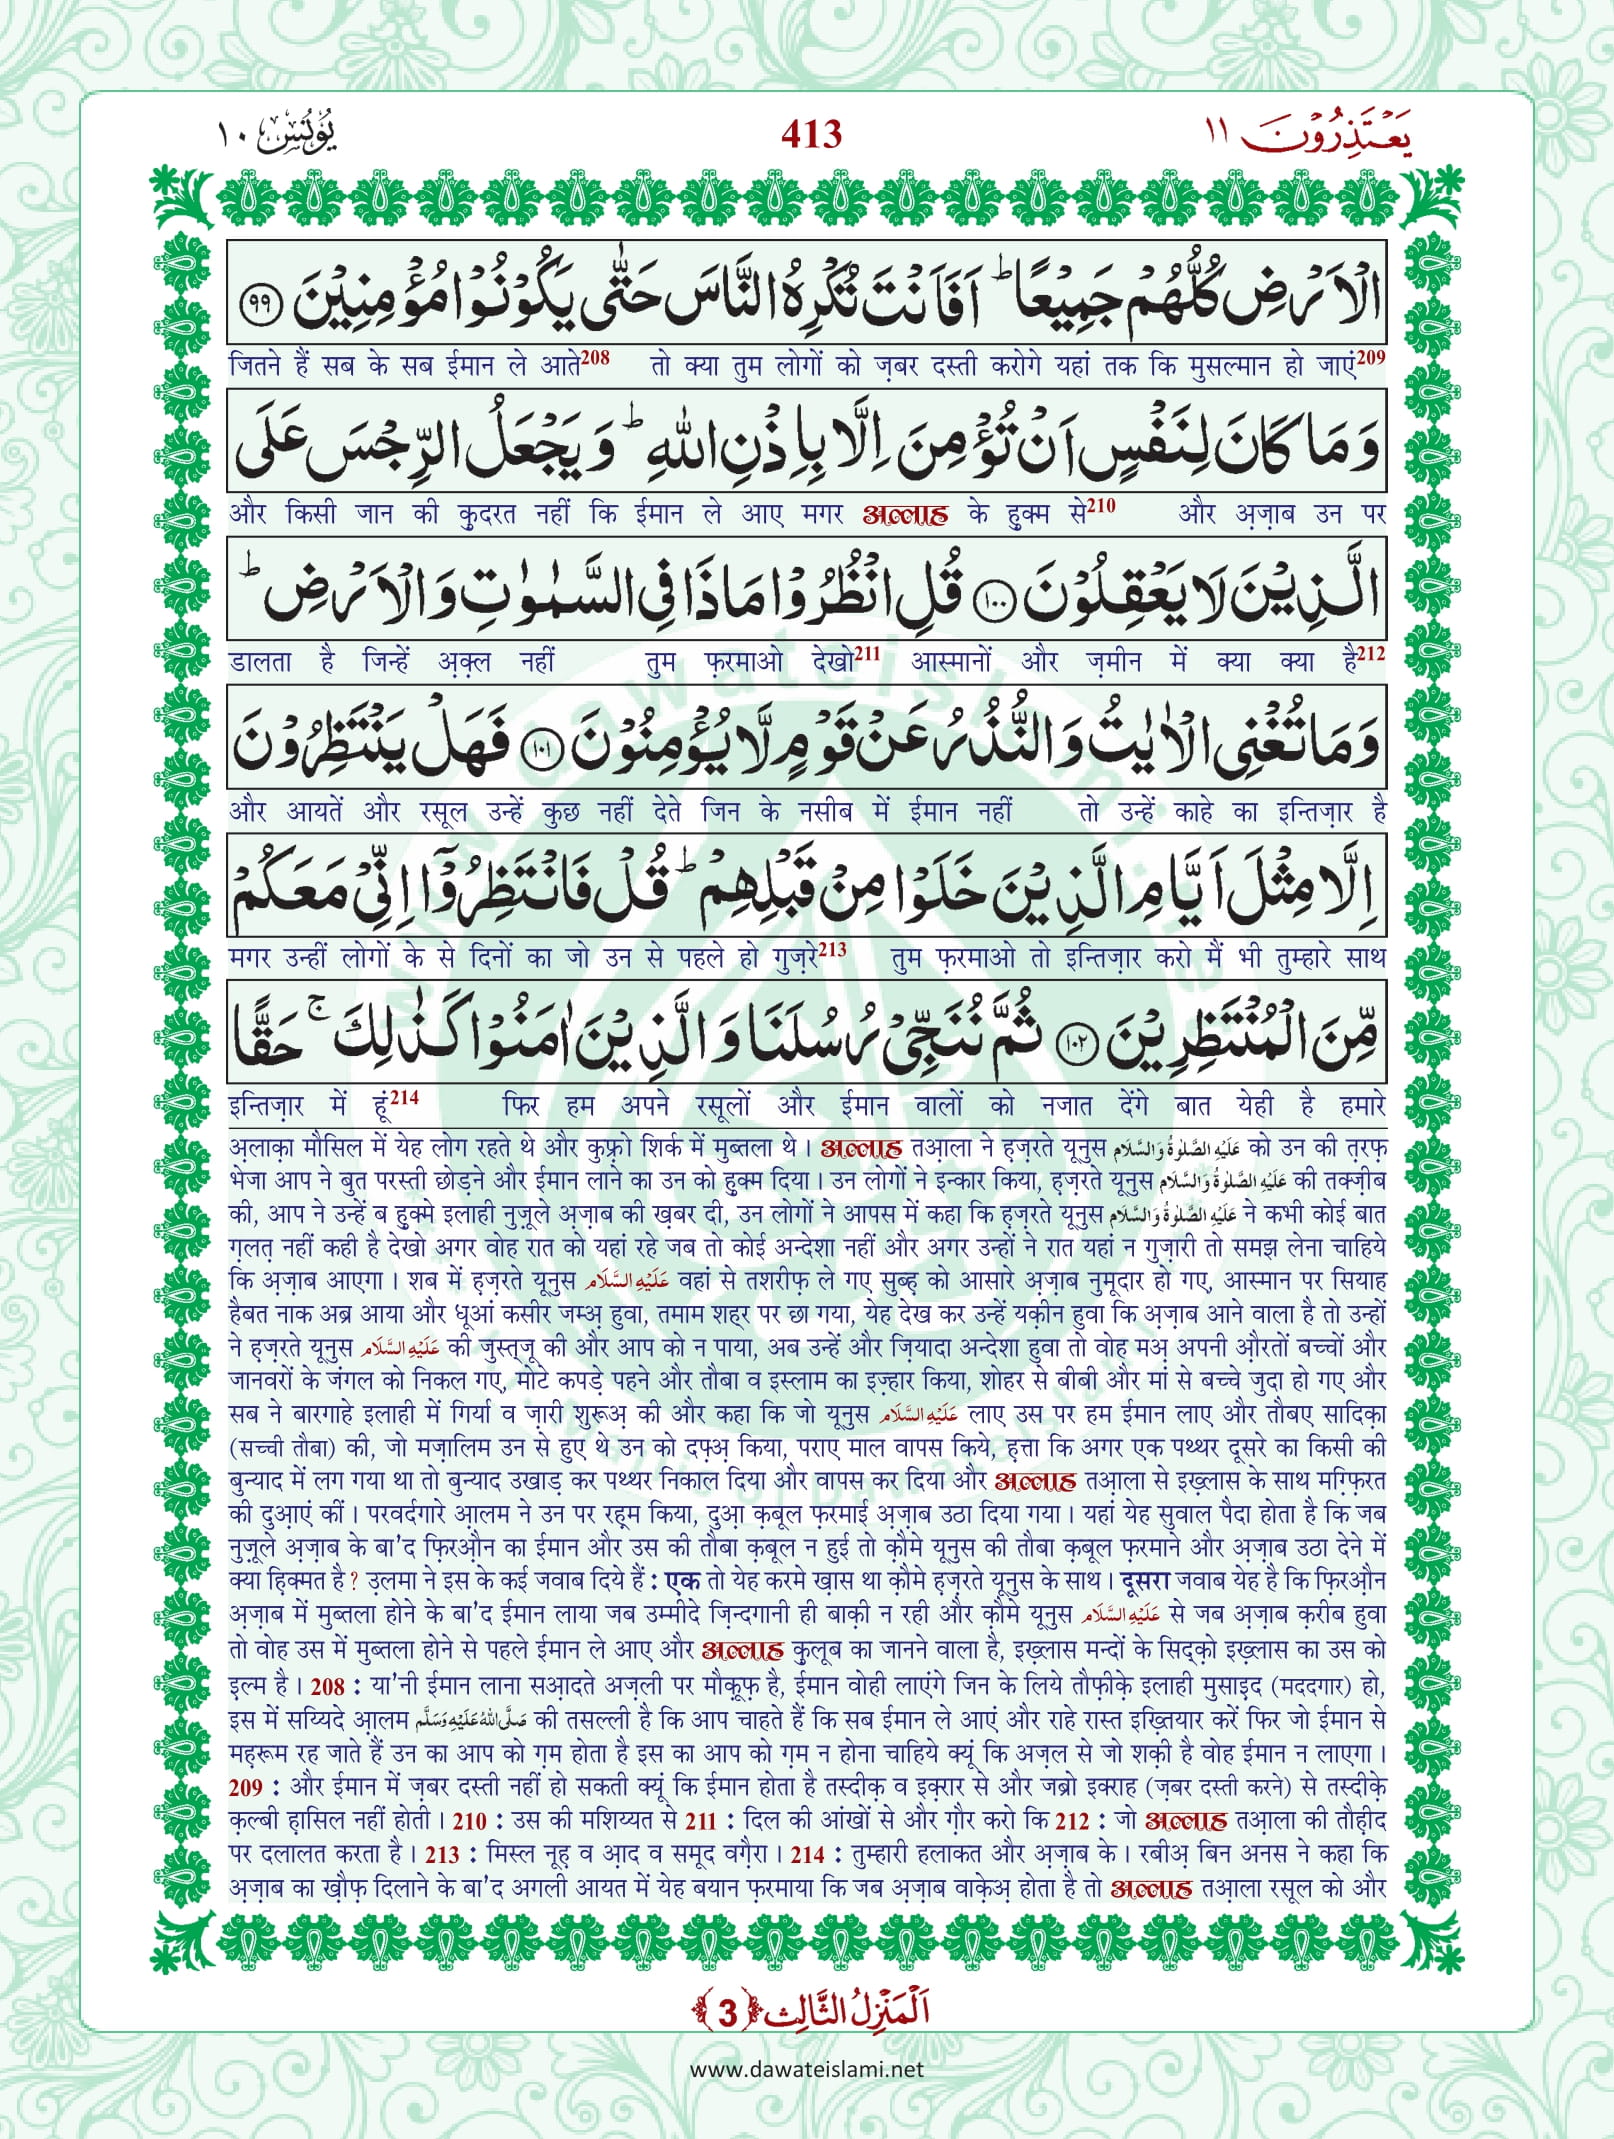 يَعْتَذِرُوْنَ ١١
413
يُوْنُس ١٠
الْاَرْضِ كُلُّهُمْ جَمِيْعًاؕ اَفَاَنْتَ تُكْرِهُ النَّاسَ حَتّٰى يَكُوْنُوْا مُؤْمِنِيْنَ ﴿٩٩﴾
जितने हैं सब के सब ईमान ले आते208 तो क्या तुम लोगों को ज़बर दस्ती करोगे यहां तक कि मुसल्मान हो जाएं209
وَ مَا كَانَ لِنَفْسٍ اَنْ تُؤْمِنَ اِلَّا بِاِذْنِ اللّٰهِؕ وَ يَجْعَلُ الرِّجْسَ عَلَى
और किसी जान की क़ुदरत नहीं कि ईमान ले आए मगर अल्लाह के हुक्म से210 और अ़ज़ाब उन पर
الَّذِيْنَ لَا يَعْقِلُوْنَ ﴿١٠٠﴾ قُلِ انْظُرُوْا مَا ذَا فِي السَّمٰوٰتِ وَ الْاَرْضِؕ
डालता है जिन्हें अ़क़्ल नहीं तुम फ़रमाओ देखो211 आस्मानों और ज़मीन में क्या क्या है212
وَ مَا تُغْنِي الْاٰيٰتُ وَ النُّذُرُ عَنْ قَوْمٍ لَّا يُؤْمِنُوْنَ ﴿١٠١﴾ فَهَلْ يَنْتَظِرُوْنَ
और आयतें और रसूल उन्हें कुछ नहीं देते जिन के नसीब में ईमान नहीं तो उन्हें काहे का इन्तिज़ार है
اِلَّا مِثْلَ اَيَّامِ الَّذِيْنَ خَلَوْا مِنْ قَبْلِهِمْؕ قُلْ فَانْتَظِرُوْۤا اِنِّيْ مَعَكُمْ
मगर उन्हीं लोगों के से दिनों का जो उन से पहले हो गुज़रे213 तुम फ़रमाओ तो इन्तिज़ार करो मैं भी तुम्हारे साथ
مِّنَ الْمُنْتَظِرِيْنَ ﴿١٠٢﴾ ثُمَّ نُنَجِّيْ رُسُلَنَا وَ الَّذِيْنَ اٰمَنُوْا كَذٰلِكَۚ حَقًّا
इन्तिज़ार में हूं214 फिर हम अपने रसूलों और ईमान वालों को नजात देंगे बात येही है हमारे
अ़लाक़ा मौसिल में येह लोग रहते थे और कुफ़्रो शिर्क में मुब्तला थे। अल्लाह तआ़ला ने ह़ज़रते यूनुस عَلَيْهِ الصَّلٰوةُ وَالسَّلَام को उन की त़रफ़
भेजा आप ने बुत परस्ती छोड़ने और ईमान लाने का उन को हुक्म दिया। उन लोगों ने इन्कार किया, ह़ज़रते यूनुस عَلَيْهِ الصَّلٰوةُ وَالسَّلَام की तक्ज़ीब
की, आप ने उन्हें ब हुक्मे इलाही नुज़ूले अ़ज़ाब की ख़बर दी, उन लोगों ने आपस में कहा कि ह़ज़रते यूनुस عَلَيْهِ الصَّلٰوةُ وَالسَّلَام ने कभी कोई बात
ग़लत़ नहीं कही है देखो अगर वोह रात को यहां रहे जब तो कोई अन्देशा नहीं और अगर उन्हों ने रात यहां न गुज़ारी तो समझ लेना चाहिये
कि अ़ज़ाब आएगा। शब में ह़ज़रते यूनुस عَلَيْهِ السَّلَام वहां से तशरीफ़ ले गए सुब्ह़ को आसारे अ़ज़ाब नुमूदार हो गए, आस्मान पर सियाह
हैबत नाक अब्र आया और धूआं कसीर जम्अ़ हुवा, तमाम शहर पर छा गया, येह देख कर उन्हें यक़ीन हुवा कि अ़ज़ाब आने वाला है तो उन्हों
ने ह़ज़रते यूनुस عَلَيْهِ السَّلَام की जुस्त्जू की और आप को न पाया, अब उन्हें और ज़ियादा अन्देशा हुवा तो वोह मअ़ अपनी औ़रतों बच्चों और
जानवरों के जंगल को निकल गए, मोटे कपड़े पहने और तौबा व इस्लाम का इज़्हार किया, शोहर से बीबी और मां से बच्चे जुदा हो गए और
सब ने बारगाहे इलाही में गिर्या व ज़ारी शुरूअ़ की और कहा कि जो यूनुस عَلَيْهِ السَّلَام लाए उस पर हम ईमान लाए और तौबए सादिक़ा
(सच्ची तौबा) की, जो मज़ालिम उन से हुए थे उन को दफ़्अ़ किया, पराए माल वापस किये, ह़त्ता कि अगर एक पथ्थर दूसरे का किसी की
बुन्याद में लग गया था तो बुन्याद उखाड़ कर पथ्थर निकाल दिया और वापस कर दिया और अल्लाह तआ़ला से इख़्लास के साथ मग़्फ़िरत
की दुआ़एं कीं। परवर्दगारे आ़लम ने उन पर रह़्म किया, दुआ़ क़बूल फ़रमाई अ़ज़ाब उठा दिया गया। यहां येह सुवाल पैदा होता है कि जब
नुज़ूले अ़ज़ाब के बा'द फ़िरऔ़न का ईमान और उस की तौबा क़बूल न हुई तो क़ौमे यूनुस की तौबा क़बूल फ़रमाने और अ़ज़ाब उठा देने में
क्या ह़िक्मत है? उ़लमा ने इस के कई जवाब दिये हैं : एक तो येह करमे ख़ास था क़ौमे ह़ज़रते यूनुस के साथ। दूसरा जवाब येह है कि फ़िरऔ़न
अ़ज़ाब में मुब्तला होने के बा'द ईमान लाया जब उम्मीदे ज़िन्दगानी ही बाक़ी न रही और क़ौमे यूनुस عَلَيْهِ السَّلَام से जब अ़ज़ाब क़रीब हुवा
तो वोह उस में मुब्तला होने से पहले ईमान ले आए और अल्लाह क़ुलूब का जानने वाला है, इख़्लास मन्दों के सिद्क़ो इख़्लास का उस को
इ़ल्म है। 208 : या'नी ईमान लाना सआ़दते अज़ली पर मौक़ूफ़ है, ईमान वोही लाएंगे जिन के लिये तौफ़ीक़े इलाही मुसाइ़द (मददगार) हो,
इस में सय्यिदे आ़लम صَلَّى اللهُ عَلَيْهِ وَسَلَّم की तसल्ली है कि आप चाहते हैं कि सब ईमान ले आएं और राहे रास्त इख़्तियार करें फिर जो ईमान से
मह़रूम रह जाते हैं उन का आप को ग़म होता है इस का आप को ग़म न होना चाहिये क्यूं कि अज़ल से जो शक़ी है वोह ईमान न लाएगा।
209 : और ईमान में ज़बर दस्ती नहीं हो सकती क्यूं कि ईमान होता है तस्दीक़ व इक़्रार से और जब्रो इक्राह (ज़बर दस्ती करने) से तस्दीक़े
क़ल्बी ह़ासिल नहीं होती। 210 : उस की मशिय्यत से 211 : दिल की आंखों से और ग़ौर करो कि 212 : जो अल्लाह तआ़ला की तौह़ीद
पर दलालत करता है। 213 : मिस्ल नूह़ व आ़द व समूद वग़ैरा। 214 : तुम्हारी हलाकत और अ़ज़ाब के। रबीअ़ बिन अनस ने कहा कि
अ़ज़ाब का ख़ौफ़ दिलाने के बा'द अगली आयत में येह बयान फ़रमाया कि जब अ़ज़ाब वाक़ेअ़ होता है तो अल्लाह तआ़ला रसूल को और
اَلْمَنْزِلُ الثَّالِث ﴿3﴾
www.dawateislami.net